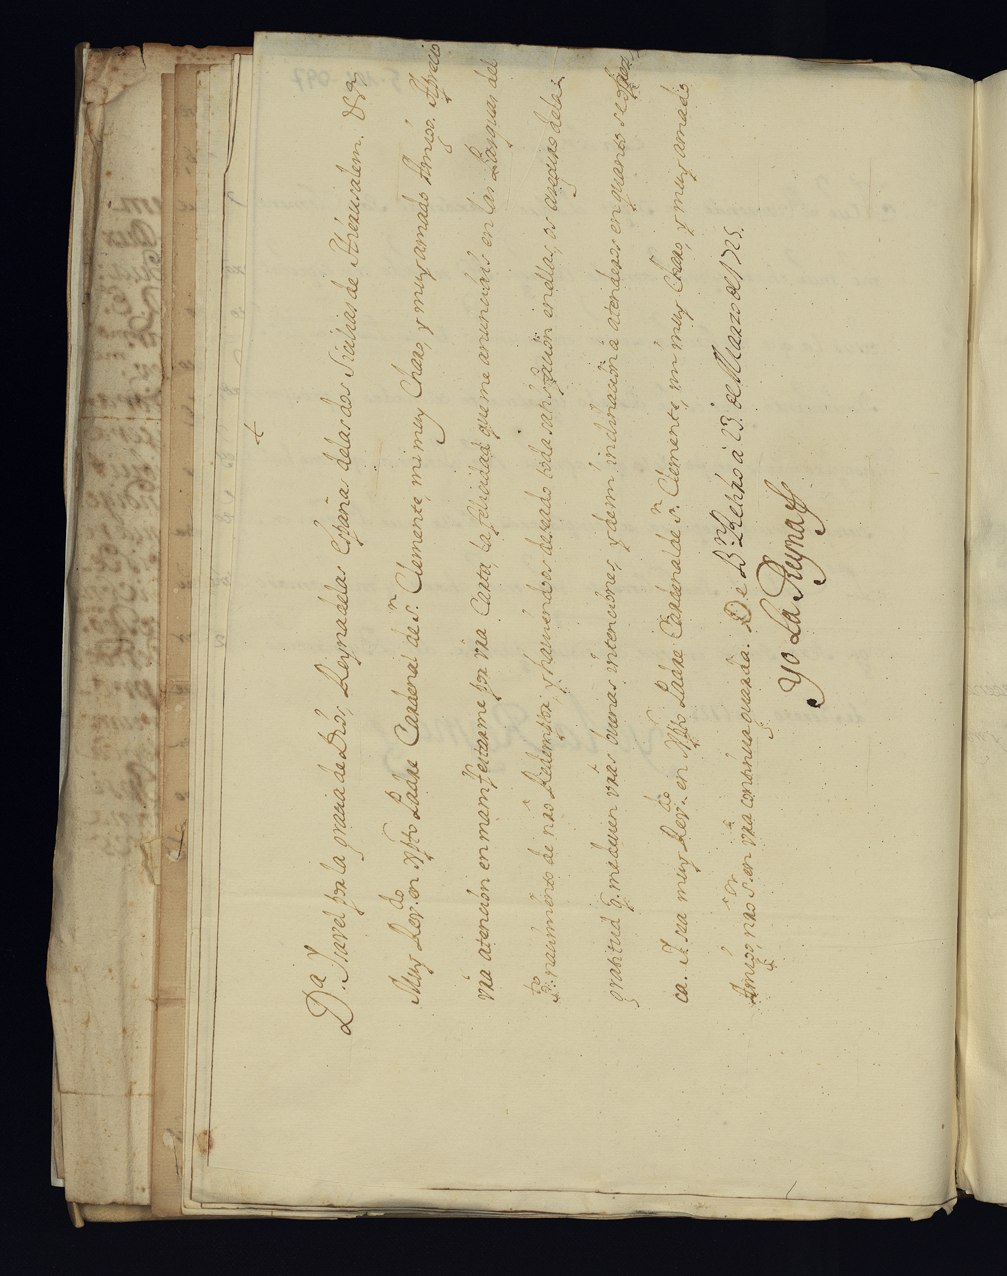 ✝
Dª. Isavel por la gracia de Dios, Reyna delas España delas dos Sicilias de Hierusalem. &ª
Muy Rev.do en Xpto Padre Cardenal de S.n Clemente, mi muy Charo, y muy amado Amigo. Aprecio
vrã atencion en manifestarme por vrã Carta, la felicidad que me anunciais en las Pasquas del
nacimiento de nrõ Redemptor y haviendoos deseado toda satisfacion en ellas, os aseguro dela
gratitud q̃. merecen vrãs buenas intenciones, y de mi inclinacion a atenderos en quanto se ofrez
ca. Y sea muy Rev.do en Xpto Padre Cardenal de S.n Clemente, mi muy Charo, y muy amado
Amigo, nrõ S.or en vrã continua guarda. De B.n Retiro à 23. de Marzo de 1725.
Yo La Reyna